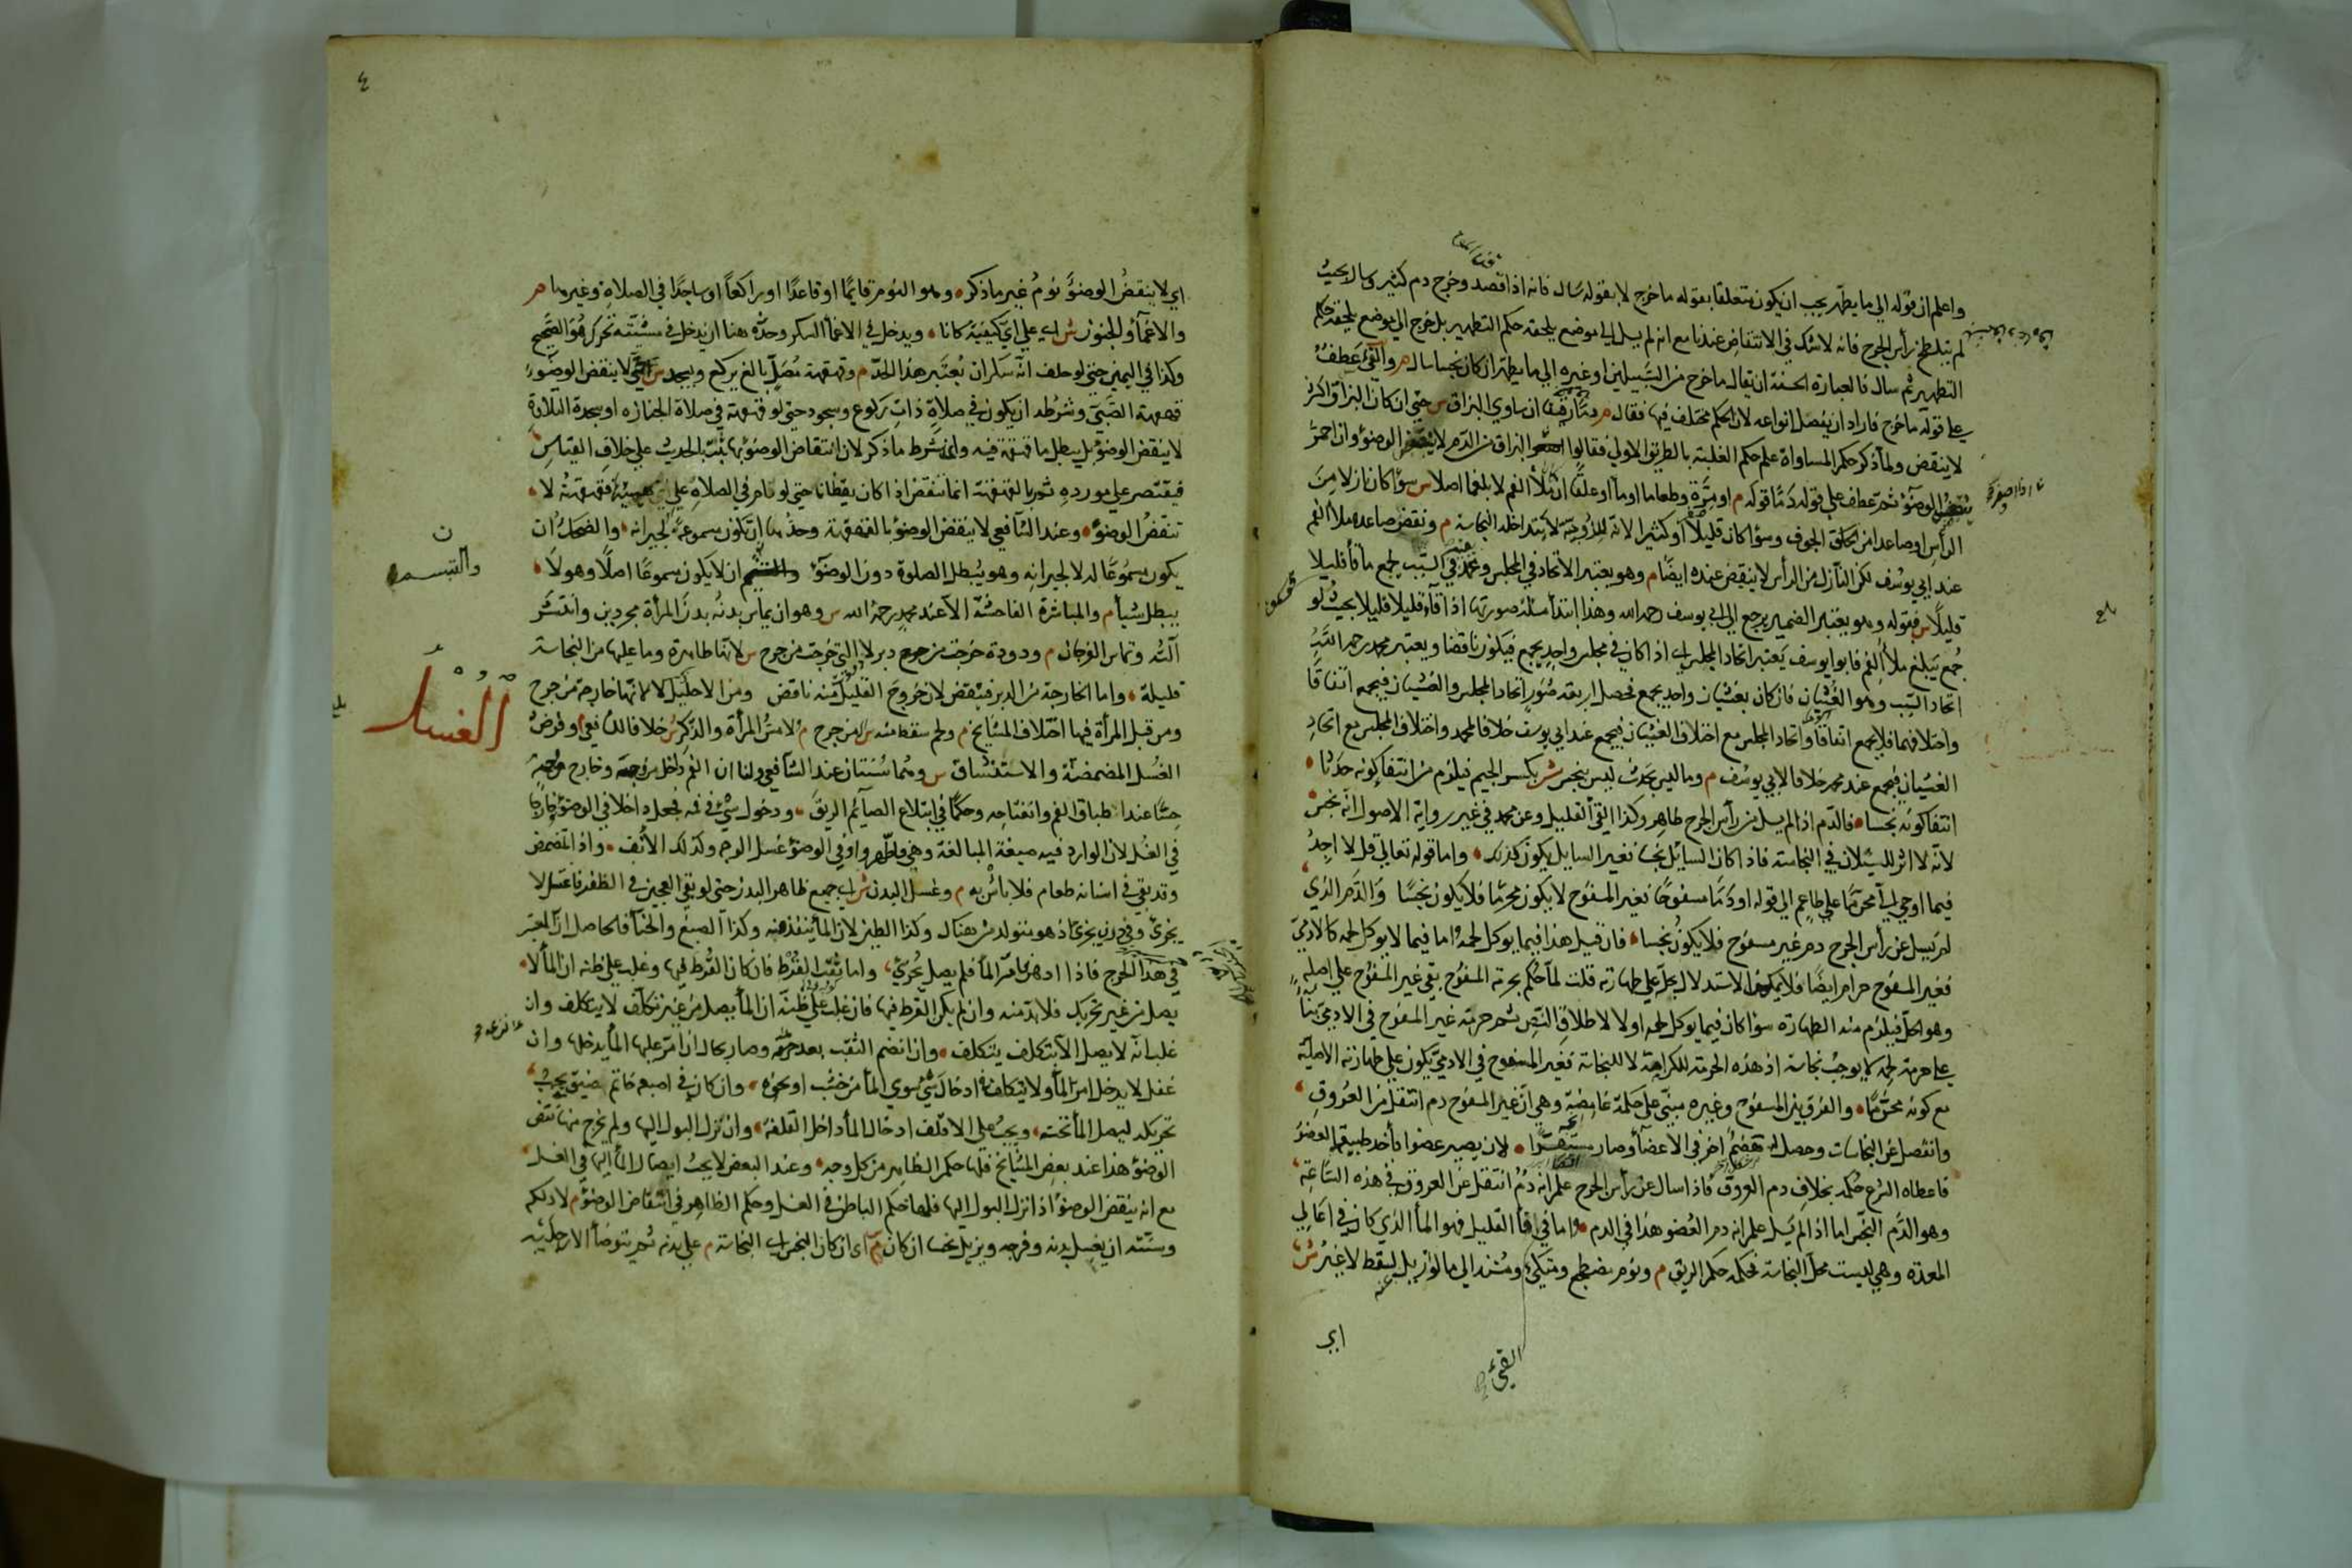 واعلم ان قوله الي ما يطهر يجب ان يكون متعلقا بقوله ما خرج لا بقوله سال فانه اذا فصد وخرج دم كثير وسال بحيث
لم يتلطخ رأس الجرح فانه لا شك في الانتقاض عندنا مع انه لم يسل الي موضع يلحقه حكم التطهير بل خرج الي موضع يلحقه حكم
التطهير ثم سال فالعبارة الحسنة ان يقال ما خرج من السبيلين او غيره الي ما يطهر ان كان نجسا سال م والقئ عطف
علي قوله ما خرج فاراد ان يفصل انواعه لان الحكم مختلف فيها فقال م دما رقيقا ان ساوي البزاق س حتي ان كان البزاق اكثر
لا ينقض ولما ذكر حكم المساواة علم حكم الغلبة بالطريق الاولي فقالوا البزاق من الدم لا ينقض الوضوء وان احمر
ينقض الوضوء ثم عطف علي قوله دما قوله م او مرة وطعاما او ماء او علقا ان ملأ الفم لا بلغما اصلا س سواء كان نازلا من
الرأس او صاعدا من الجوف وسواء كان قليلا او كثيرا لانه للزوجته لا تتداخله النجاسة م ونقض صاعده ملأ الفم
عند ابي يوسف لكن النازل من الرأس لا ينقض عنده ايضا م وهو يعتبر الاتحاد في المجلس ومحمد في السبب لجمع ما قاء قليلا
قليلا س فقوله وهو يعتبر الضمير يرجع الي ابي يوسف رحمه الله وهذا ابتدأ مسئلة صورتها اذا قاء قليلا قليلا بحيث لو
جمع يبلغ ملأ الفم فابو يوسف يعتبر اتحاد المجلس اي اذا كان في مجلس واحد يجمع فيكون ناقضا ويعتبر محمد رحمه الله
اتحاد السبب وهو الغثيان فان كان بغثيان واحد يجمع فحصل اربعة صور اتحاد المجلس والغثيان فيجمع اتفاقا
واختلافهما فلا يجمع اتفاقا واتحاد المجلس مع اختلاف الغثيان فيجمع عند ابي يوسف خلافا لمحمد واختلاف المجلس مع اتحاد
الغثيان فيجمع عند محمد خلافا لابي يوسف م وما ليس بحدث ليس بنجس ش بكسر الجيم فيلزم من انتفا كونه حدثا
انتفا كونه نجسا فالدم اذا لم يسل من رأس الجرح طاهر وكذا القئ القليل وعن محمد في غير رواية الاصول انه نجس
لانه لا اثر للسيلان في النجاسة فاذا كان السائل نجسا فغير السايل يكون كذلك واما قوله تعالي قل لا اجد
فيما اوحي الي محرما علي طاعم الي قوله او دما مسفوحا فغير المسفوح لا يكون محرما فلا يكون نجسا والدم الذي
لم يسل عن رأس الجرح دم غير مسفوح فلا يكون نجسا فان قيل هذا فيما يوكل لحمه اما فيما لا يوكل لحمه كالادمي
فغير المسفوح حرام ايضا فلا يمكن الاستدلال بحله علي طهارته قلت لما حكم بحرمة المسفوح بقي غير المسفوح علي اصله
وهو الحل فيلزم منه الطهارة سواء كان فيما يوكل لحمه او لا لاطلاق النص ثم حرمة غير المسفوح في الادمي بناء
علي حرمة لحمه لا يوجب نجاسته اذ هذه الحرمة للكراهة لا للنجاسة فغير المسفوح في الادمي يكون علي طهارته الاصلية
مع كونه محرما والفرق بين المسفوح وغيره مبني علي حكمة غامضة وهي ان غير المسفوح دم انتقل من العروق
وانفصل عن النجاسات وحصل له هضم اخر في الاعضاء وصار لان يصير عضوا فأخذ طبيعة العضو
فاعطاه الشرع حكمه بخلاف دم العروق فاذا سال عن رأس الجرح علم انه دم انتقل عن العروق في هذه الساعة
وهو الدم النجس اما اذا لم يسل علم انه دم العضو هذا في الدم واما في القليل فهو الماء الذي كان في اعالي
المعدة وهي ليست محل النجاسة فحكمه حكم الريق م ونوم مضطجع ومتكئ ومستند الي ما لو ازيل لسقط لا غير ش
القئ
اي
٤
اي لا ينقض الوضوء نوم غير ما ذكر وهو النوم قايما او قاعدا او راكعا او ساجدا في الصلاة وغيرها م
والاغماء والجنون ش اي علي اي كيفية كانا ويدخل في الاغماء السكر وحده هنا ان يدخل في مشيته تحرك هو الصحيح
وكذا في اليمين حتي لو حلف انه سكران يعتبر هذا الحد م وقهقهة مصل بالغ يركع ويسجد س حتي لا ينقض الوضوء
قهقهة الصبي وشرطه ان يكون في صلاة ذات ركوع وسجود حتي لو قهقه في صلاة الجنازه او سجدة التلاوة
لا ينقض الوضوء بل يبطل ما قهقه فيه وانما شرط ما ذكر لان انتقاض الوضوء بها ثبت بالحديث علي خلاف القياس
فيقتصر علي مورده ثم القهقهة انما تنقض اذا كان يقظانا حتي لو نام في الصلاة علي قهقهته لا
تنقض الوضوء وعند الشافعي لا ينقض الوضوء بالقهقهة وحدها ان تكون مسموعة لجيرانه والضحك ان
يكون مسموعا له لا لجيرانه وهو يبطل الصلوة دون الوضوء ان لا يكون مسموعا اصلا وهو لا
والتبسم
يبطل شيأ م والمباشرة الفاحشة الا عند محمد رحمه الله س وهو ان يماس بدنه بدن المرأة مجردين وانتشر
آلته وتماس الفرجان م ودودة خرجت من دبر لا التي خرجت من جرح س لانها طاهرة وما عليها من النجاسة
قليلة واما الخارجة من الدبر فينقض لان خروج القليل منه ناقض ومن الاحليل لا لانها خارجة من جرح
الغسل
ومن قبل المرأة فيها اختلاف المشايخ م ولحم سقط منه س اي من جرح م ولا مس المرأة والذكر س خلافا للشافعي وفرض
الغسل المضمضة والاستنشاق س وهما سنتان عند الشافعي ولنا ان الفم داخل من وجه وخارج من وجه
حسا عند انطباق الفم وانفتاحه وحكما في ابتلاع الصائم الريق ودخول شئ في فمه فجعل داخلا في الوضوء خارجا
في الغسل لان الوارد فيه صيغة المبالغة وهي فاطهروا وفي الوضوء غسل الوجه وكذلك الانف واذا تمضمض
وقد بقي في اسنانه طعام فلا بأس به م وغسل البدن ش اي جميع ظاهر البدن حتي لو بقي العجين في الظفر فاغتسل لا
يجزئ وفي درن يجزئ اذ هو متولد من هناك وكذا الطين لان الماء ينفذ فيه وكذا الصبغ والحناء فالحاصل ان المعتبر
في هذا الحرج فاذا ادهن فامر الماء فلم يصل يجزئ واما ثقب القرط فان كان القرط فيها وغلب علي ظنه ان الماء لا
يصل من غير تحريك فلا بد منه وان لم يكن القرط فيها فان غلب علي ظنه ان الماء يصل من غير تكلف لا يتكلف وان
غلب انه لا يصل الا بتكلف يتكلف وان انضم الثقب بعد نزعه وصار بحال ان امر عليها الماء يدخلها وان
غفل لا يدخل امر الماء ولا يتكلف في ادخال شئ سوي الماء من خشب او نحوه وان كان في اصبعه خاتم ضيق يجب
تحريكه ليصل الماء تحته ويجب علي الاقلف ادخال الماء داخل القلفة وان نزل البول اليها ولم يخرج منها نقض
الوضوء هذا عند بعض المشايخ فلها حكم الظاهر من كل وجه وعند البعض لا يجب ايصال الماء اليها في الغسل
مع انه ينقض الوضوء اذا نزل البول اليها فلها حكم الباطن في الغسل وحكم الظاهر في انتقاض الوضوء م لا دلكه
وسنته ان يغسل يديه وفرجه ويزيل نجسا ان كان س اي ان كان النجس اي النجاسة م علي بدنه ثم يتوضأ الا رجليه